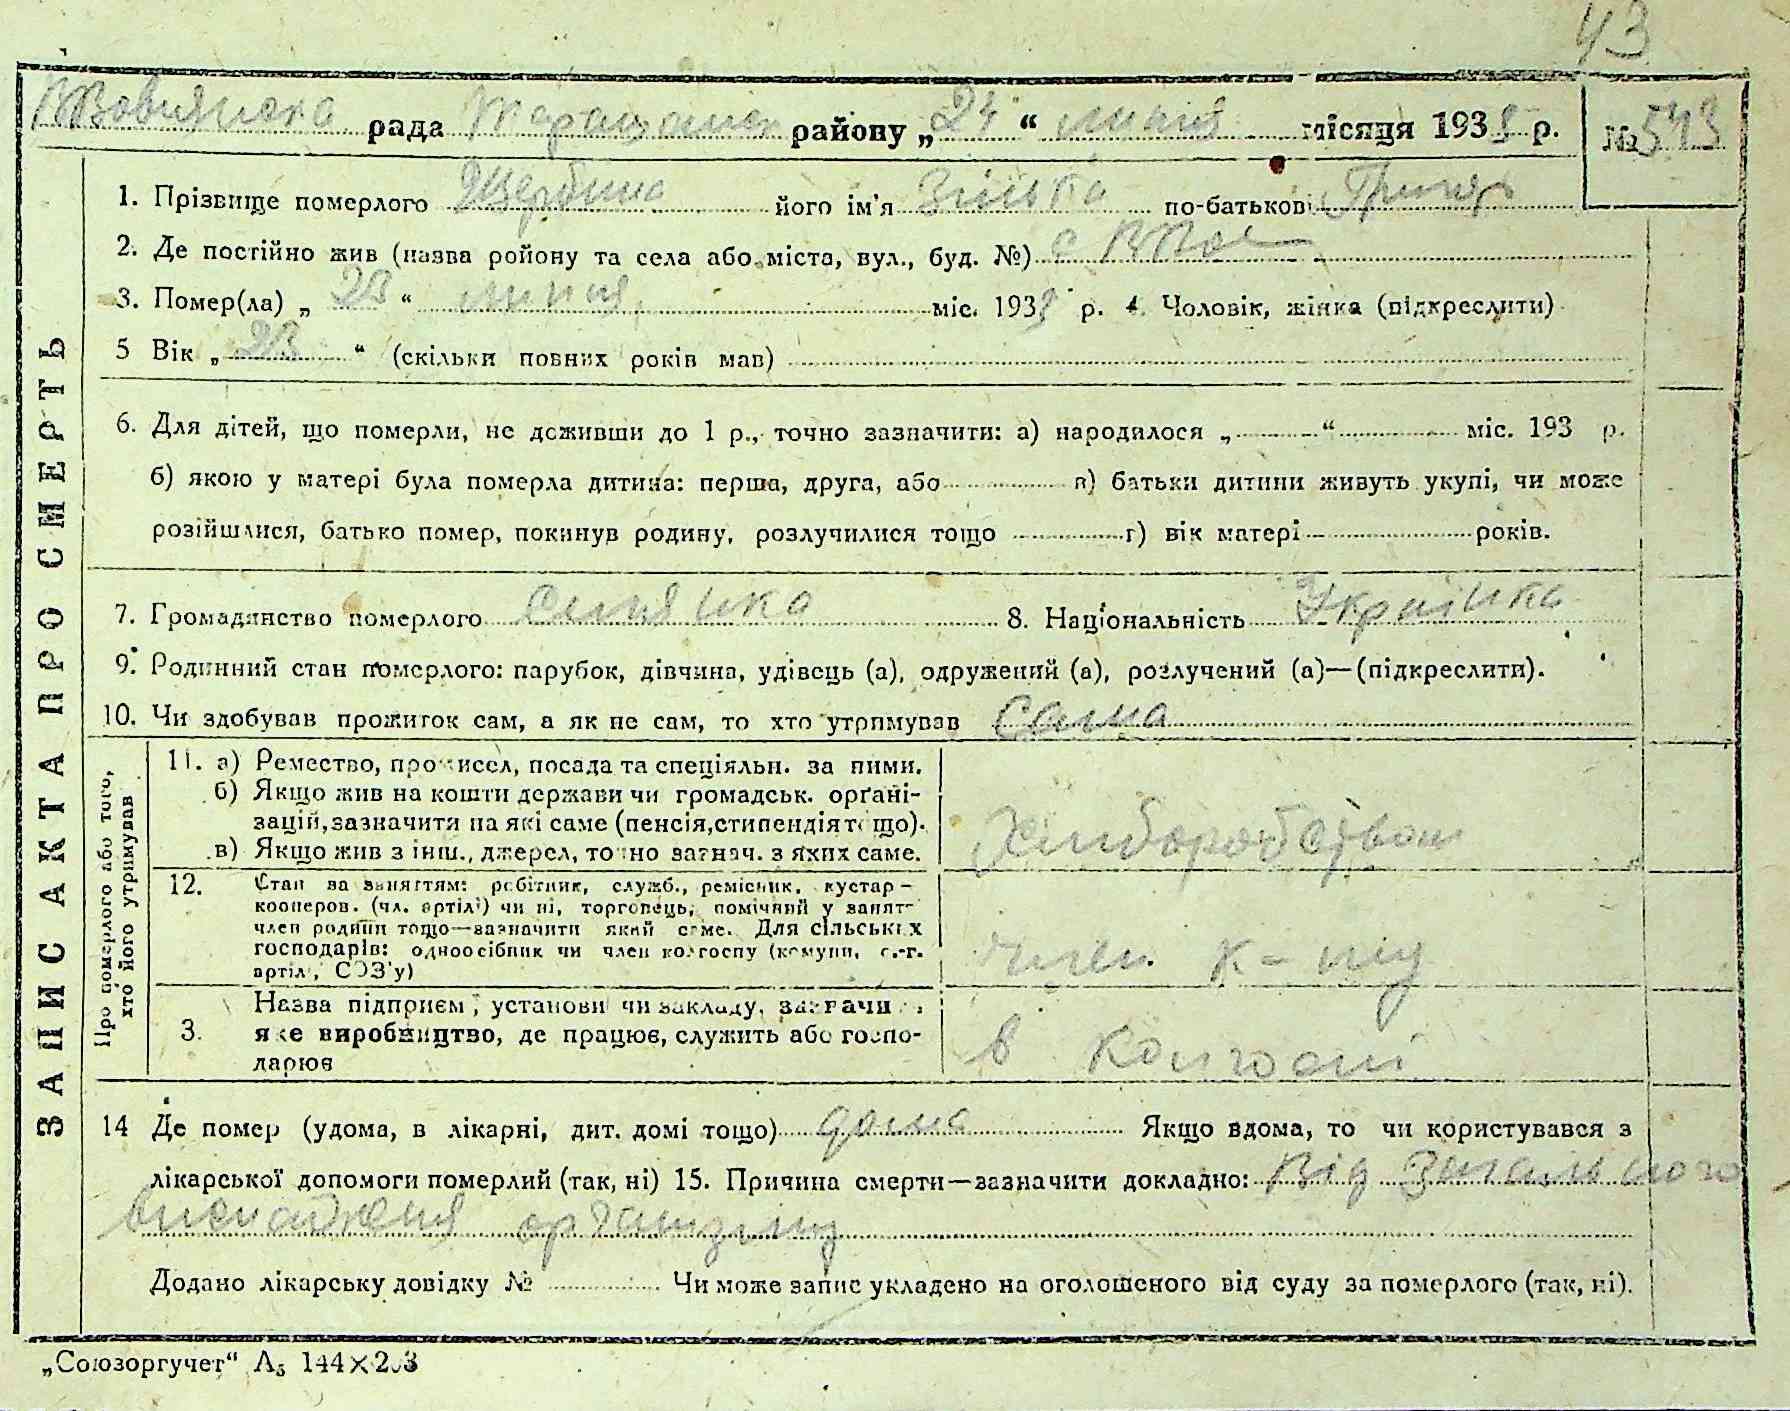 43
рада Таращанс району „24“ липня місяця 1933 р. № 543
1. Прізвище померлого Щербина його ім'я Зінька по-батькові Григор
2. Де постійно жив (назва ройону та села або міста, вул., буд. №) с
3. Помер(ла) „23“ липня міс. 1933 р. 4. Чоловік, жінка (підкреслити)
5 Вік „23“ (скільки повних років мав)
6. Для дітей, що померли, не доживши до 1 р., точно зазначити: а) народилося „ “ міс. 193 р.
б) якою у матері була померла дитина: перша, друга, або в) батьки дитини живуть укупі, чи може
розійшлися, батько помер, покинув родину, розлучилися тощо г) вік матері років.
7. Громадянство померлого селянка 8. Національність Українка
9. Родинний стан померлого: парубок, дівчина, удівець (а), одружений (а), розлучений (а)—(підкреслити).
10. Чи здобував прожиток сам, а як не сам, то хто утримував Сама
ЗАПИС АКТА ПРО СМЕРТЬ
Про померлого або того,
хто його утримував
11. а) Ремество, промисел, посада та спеціяльн. за ними.
б) Якщо жив на кошти держави чи громадськ. орґані-
зацій, зазначити на які саме (пенсія, стипендія тощо).
в) Якщо жив з інш., джерел, точно зазнач. з яких саме.
Хліборобством
12. Стан за заняттям: робітник, служб., ремісник, кустар –
кооперов. (чл. артілі) чи ні, торговець, помічний у занят-
член родини тощо—зазначити який саме. Для сільських
господарів: одноосібник чи член колгоспу (комуни, с.-г.
артілі, СОЗ'у)
член к-пу
3. Назва підприєм, установи чи закладу, зазначи
яке виробництво, де працює, служить або госпо-
дарює
в колгоспі
14 Де помер (удома, в лікарні, дит. домі тощо) дома Якщо вдома, то чи користувався з
лікарської допомоги померлий (так, ні) 15. Причина смерти—зазначити докладно: Від загального
виснаження організму
Додано лікарську довідку № Чи може запис укладено на оголошеного від суду за померлого (так, ні).
„Союзоргучет“ А₅ 144×203